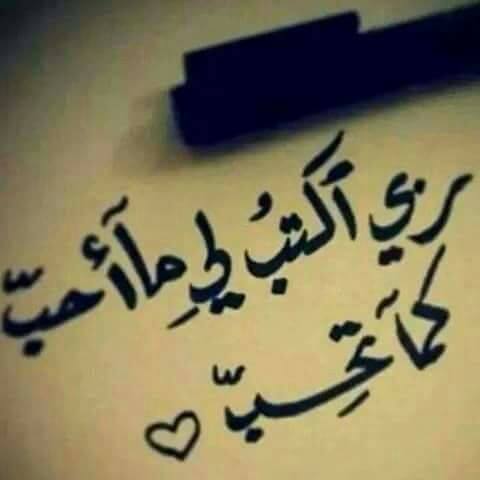 ربي ٱكتبُ لي مآأحبّ
كمآ تحِبّ